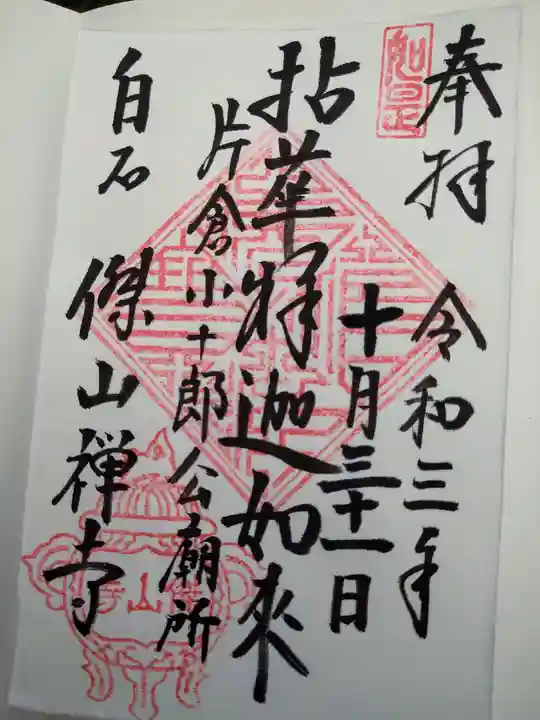 奉拝
令和三年
十月三十一日
如是
拈華釈迦如来
片倉小十郎公廟所
白石
傑山禅寺